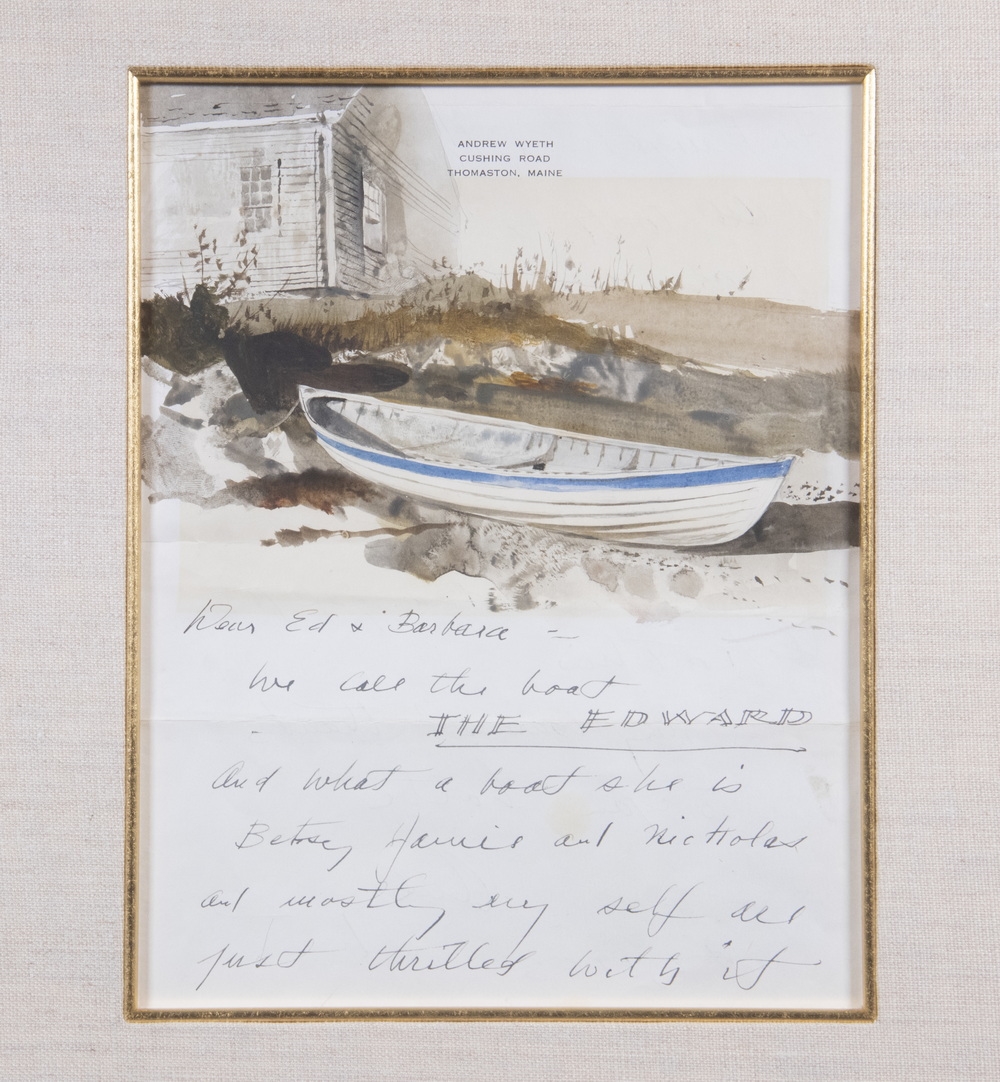 ANDREW WYETH
CUSHING ROAD
THOMASTON, MAINE
Dear Ed & Barbara —
We call the boat
THE EDWARD
and what a boat she is
Betsy Jamie and Nicholas
and mostly my self are
just thrilled with it